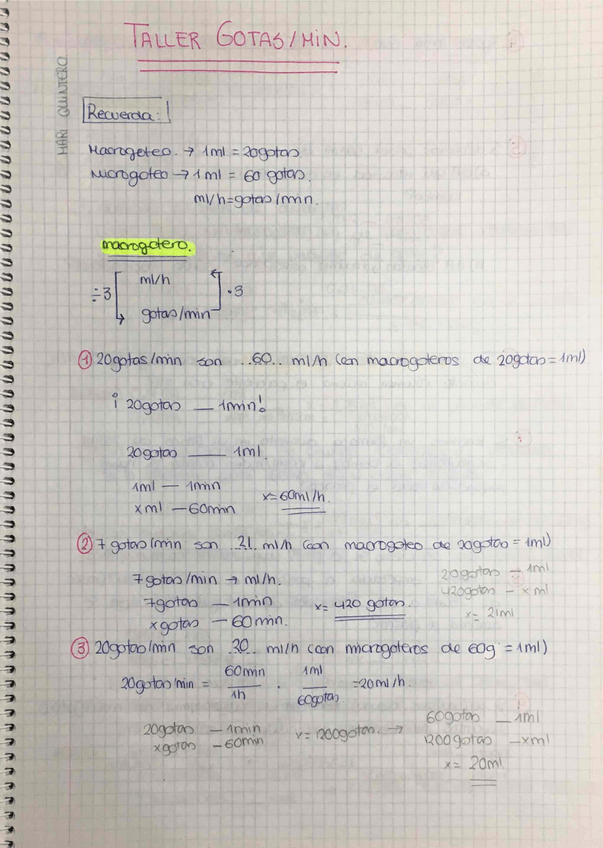 TALLER GOTAS/MIN.
MARI QUINTERO
Recuerda:
Macrogoteo. → 1ml = 20gotas
Microgoteo → 1ml = 60 gotas.
ml/h=gotas/min.
macrogotero.
÷3 ml/h ·3
gotas/min
① 20gotas/min son ..60.. ml/h (con macrogoteros de 20gotas=1ml)
¡ 20gotas — 1min!
20gotas — 1ml.
1ml — 1min
x ml — 60min
x=60ml/h.
② 7 gotas/min son ..21.. ml/h (con macrogoteo de 20gotas = 1ml)
7gotas/min → ml/h.
7gotas — 1min
xgotas — 60min.
x= 420 gotas.
20gotas — 1ml
420gotas — x ml
x= 21ml
③ 20gotas/min son ..20.. ml/h (con microgoteros de 60g = 1ml)
20gotas/min = 60min/1h · 1ml/60gotas =20ml/h.
20gotas — 1min
xgotas — 60min
x= 1200gotas. →
60gotas — 1ml
1200gotas — xml
x= 20ml